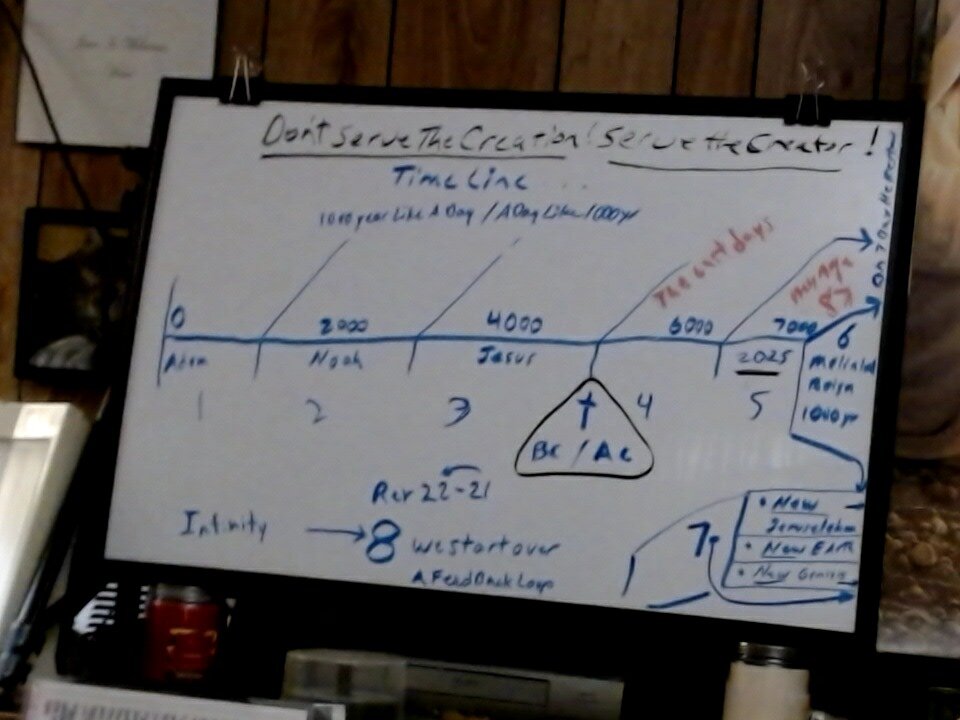 Don't Serve The Creation! Serve the Creator!
Time Line
1000 year Like A Day / A Day Like 1000 yr
The last days
0 2000 4000 6000 7000
Adam Noah Jesus 2025
1 2 3 4 5 6
Reign
1000 yr
BC / AC
Rev 22-21
Infinity → 8 we start over
A Feed Back Loop
7
• New
Jerusalem
• New Earth
• New